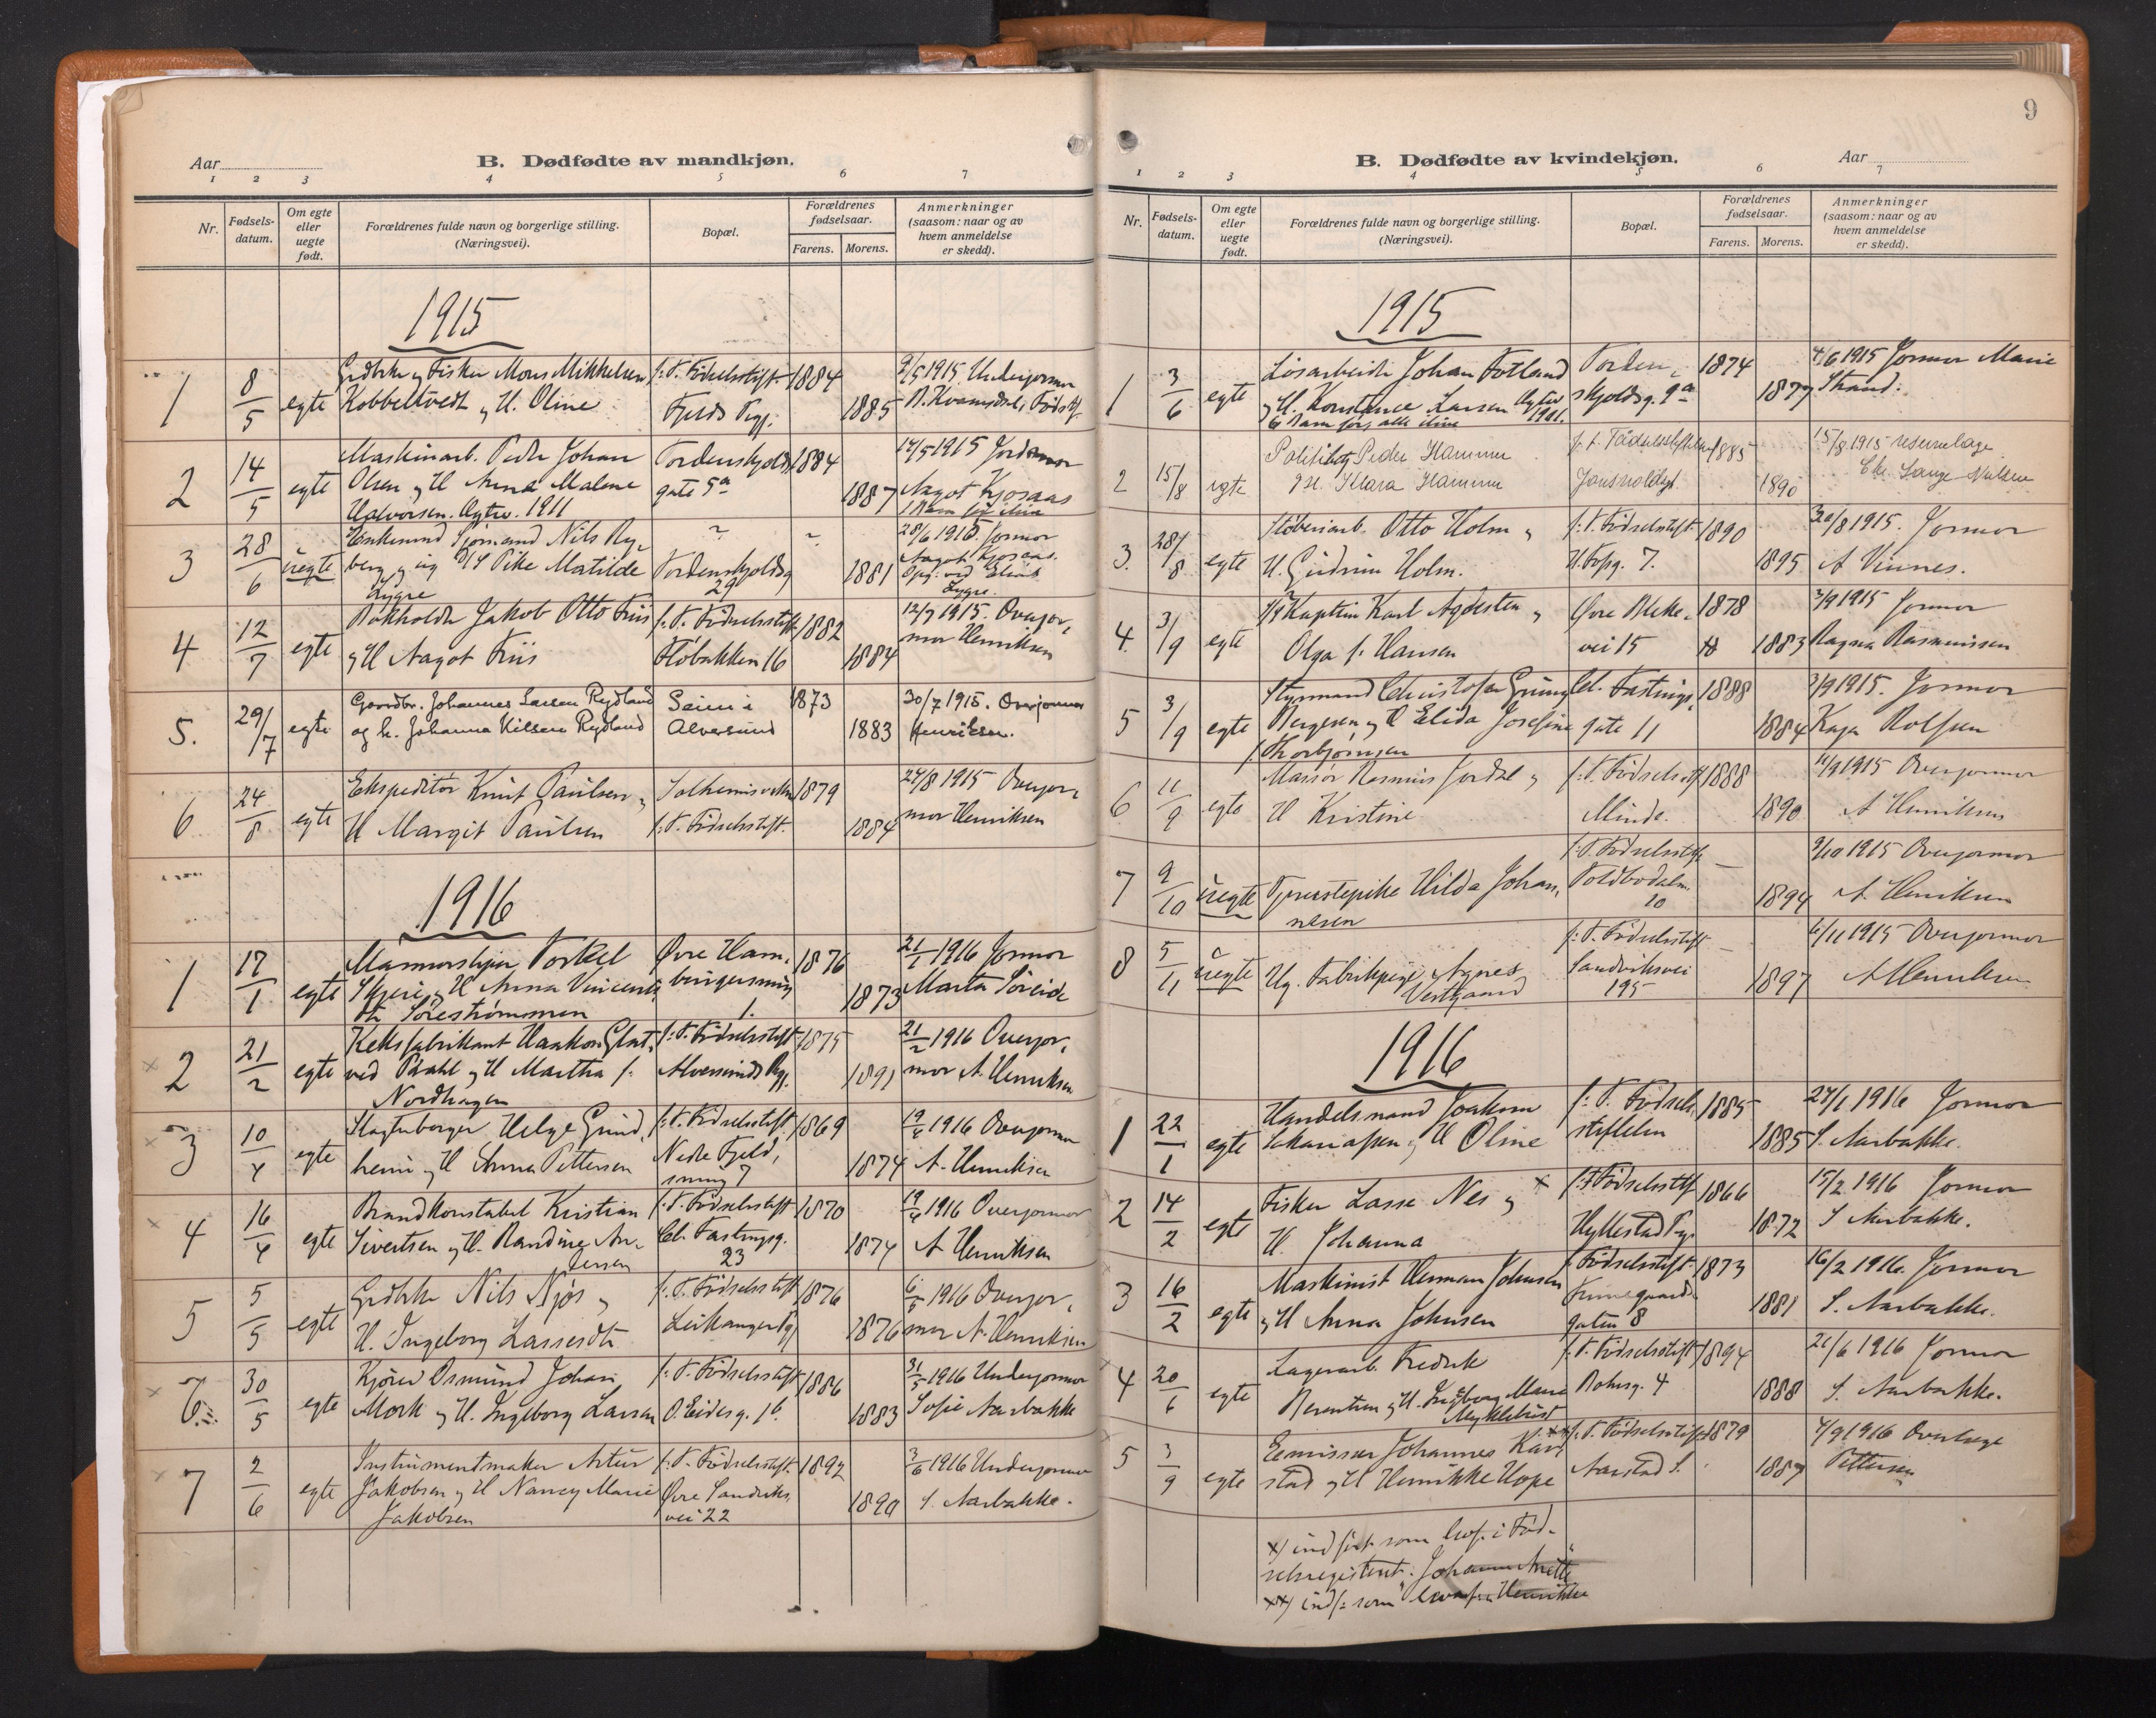 Aar
B. Dødfødte av mandkjøn.
1 2 3 4 5 6 7
Nr.
Fødsels-
datum.
Om egte
eller
uegte
født.
Forældrenes fulde navn og borgerlige stilling.
(Næringsvei).
Bopæl.
Forældrenes
fødselsaar.
Farens. Morens.
Anmerkninger
(saasom: naar og av
hvem anmeldelse
er skedd).
1915
1 8/5 egte
Grdbrk. og Fisker Mons Mikkelsen
Kobbeltvedt og H. Oline
f. T. Fødselsstift.
Fjelds Pgj.
1884
1885
9/5 1915. Underjormor
2 14/5 egte
Maskinarb. Peder Johan
Olsen og H Anna Malene
Halvorsen. Egtev. 1911
Tordenskjolds
gate 5a
1884
1887
14/5 1915 Jordmor
Aagot Kjosaas
3 28/6 uegte
Enkemand Sjømand Nils Ry-
berg og ug Pike Matilde
Lygre
Tordenskjoldsg
29
1881
28/6 1915. Jormor
Aagot Kjosaas.
Lygre.
4 12/7 egte
Bokholder Jakob Otto Friis
og H Aagot Friis
f. T. Fødselsstift
Fløbakken 16
1882
1884
12/7 1915. Overjor-
mor Henriksen
5. 29/7 egte
Gaardbr. Johannes Larsen Rydland
og h. Johanna Nilsen Rydland
Seim i
Alversund
1873
1883
30/7 1915. Overjormor
Henriksen.
6 24/8 egte
Ekspeditør Knut Paulsen og
H Margit Paulsen
Solheimsveien
f. T. Fødselsstift.
1879
1884
24/8 1915 Overjor-
mor Henriksen
1916
1 17/1 egte
Marmorsliper Torkel
Skjeie og H Anna Vincents
dtr Sørestrømmen
Øvre Ham-
burgersmug
1.
1876
1873
21/1 1916 Jormor
Marta Søreide
2 21/2 egte
Keksfabrikant Haakon Glat-
ved Dahl og H Martha f.
Nordhagen
f. T. Fødselsstift.
Alversunds Pgj.
1875
1891
21/2 1916 Overjor-
mor A. Henriksen
3 10/4 egte
Helge Grind-
heim og H Anna Pettersen
f. T. Fødselsstift
Nedre Fjeld-
smug 7
1869
1874
19/4 1916 Overjormor
A. Henriksen
4 16/4 egte
Brandkonstabel Kristian
Sivertsen og H. Randine An-
dersen
f. T. Fødselsstift
Cl. Fastingsg.
23
1870
1874
19/4 1916 Overjormor
A Henriksen
5 5/5 egte
Grdbrk Nils Njøs og
H. Ingeborg Lassesdtr
f. T. Fødselsstift
Leikanger Pgj
1876
1876
6/5 1916 Overjor-
mor A. Henriksen
6 30/5 egte
Kjører Osmund Johan
Mork og H. Ingeborg Larsen
f. T. Fødselsstift
O. Eidesg. 1b.
1886
1883
31/5 1916 Underjormor
Sofie Aarbakke
7 2/6 egte
Instrumentmaker Artur
Jakobsen og H Nancy Marie
Jakobsen
f. T. Fødselsstift.
Øvre Sandviks-
vei 22
1892
1890
3/6 1916 Underjormor
S. Aarbakke.
9
B. Dødfødte av kvindekjøn.
Aar
1 2 3 4 5 6 7
Nr.
Fødsels-
datum.
Om egte
eller
uegte
født.
Forældrenes fulde navn og borgerlige stilling.
(Næringsvei).
Bopæl.
Forældrenes
fødselsaar.
Farens. Morens.
Anmerkninger
(saasom: naar og av
hvem anmeldelse
er skedd).
1915
1 3/6 egte
Løsarbeider Johan Fotland
og H. Konstance Larsen Egtev
1901.
6 Barn før, alle ilive
Torden-
skjoldsg. 9a
1874
1877
4/6 1915 Jormor Marie
Strand.
2 15/8 egte
Politibtj Peder Hammer
og H. Klara Hammer
f. T. Fødselsstiftelsen
1885
1890
15/8 1915 reservelæge
Chr. Lange Nielsen
3. 28/8 egte
Støberiarb. Otto Holm og
H. Gudrun Holm.
f. T. Fødselsstift
1890
1895
30/8 1915. Jormor
A Vinnes.
4. 3/9 egte
Kaptein Karl Agdesten og
Olga f. Hansen
Øvre Bleke-
vei 15
1878
1883
3/9 1915 Jormor
Ragna Rasmussen
5 3/9 egte
Styrmand Christofer Grung
Bergesen og H Elida Josefine
f. Thorbjørnsen
Cl. Fastings-
gate 11
1888
1884
3/9 1915. Jormor
Kaja Rolfsen
6 11/9 egte
Massør Rasmus Jordal og
H Kristine
f. T. Fødselsstift
Minde.
1888
1890
11/9 1915 Overjormor
A Henriksen
7 9/10 uegte
Tjenestepike Hilda Johan-
nesen
f. T. Fødselsstift
Toldbodalm.
10
1894
9/10 1915 Overjormor
A. Henriksen
8 5/11 uegte
Ug. Fabrikpige Agnes
Vestgaard
f. T. Fødselsstift
Sandviksvei
195
1897
6/11 1915 Overjormor
A Henriksen
1916
1 22/1 egte
Handelsmand Joakim
Sakariassen og H Oline
f. T. Fødsels-
stiftelsen
1885
1885
24/1 1916 Jormor
S. Aarbakke.
2 14/2 egte
Fisker Lasse Nes og x
H. Johanna
f. T. Fødselsstift
Hyllestad Pgj.
1866
1872
15/2 1916 Jormor
S Aarbakke.
3 16/2 egte
Maskinist Herman Johnsen
og H Anna Johnsen
f. Fødselsstift.
Finnegaards
gaten 8
1873
1881
16/2 1916. Jormor
S. Aarbakke.
4 20/6 egte
Lagerarb. Fredrik
Berentsen og H. Ingeborg Marie
Myklebust
f. T. Fødselsstift
1894
1888
21/6 1916 Jormor
S. Aarbakke.
5 3/9 egte
Emissær Johannes Kaar xx
stad og H Henrikke Hope
f. T. Fødselsstift
Aarstad S.
1879
1887
4/9 1916 Overlæge
Pettersen
x) indført som lev. i Fød-
selsregisteret. "Johanna Anette"
xx) indf. som lev. f. "Henrikke